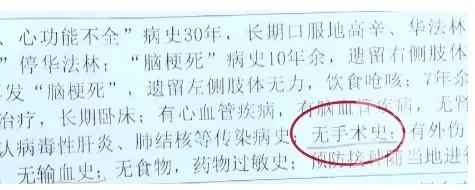 、心功能不全”病史30年，长期口服地高辛、华法林
”停华法林；“脑梗死”病史10年余，遗留右侧肢体
发“脑梗死”，遗留左侧肢体无力，饮食呛咳；7年余
治疗，长期卧床；有心血管疾病，有脑血管疾病，无
认病毒性肝炎、肺结核等传染病史；无手术史；有外伤
无输血史；无食物，药物过敏史；预防接种随当地进行